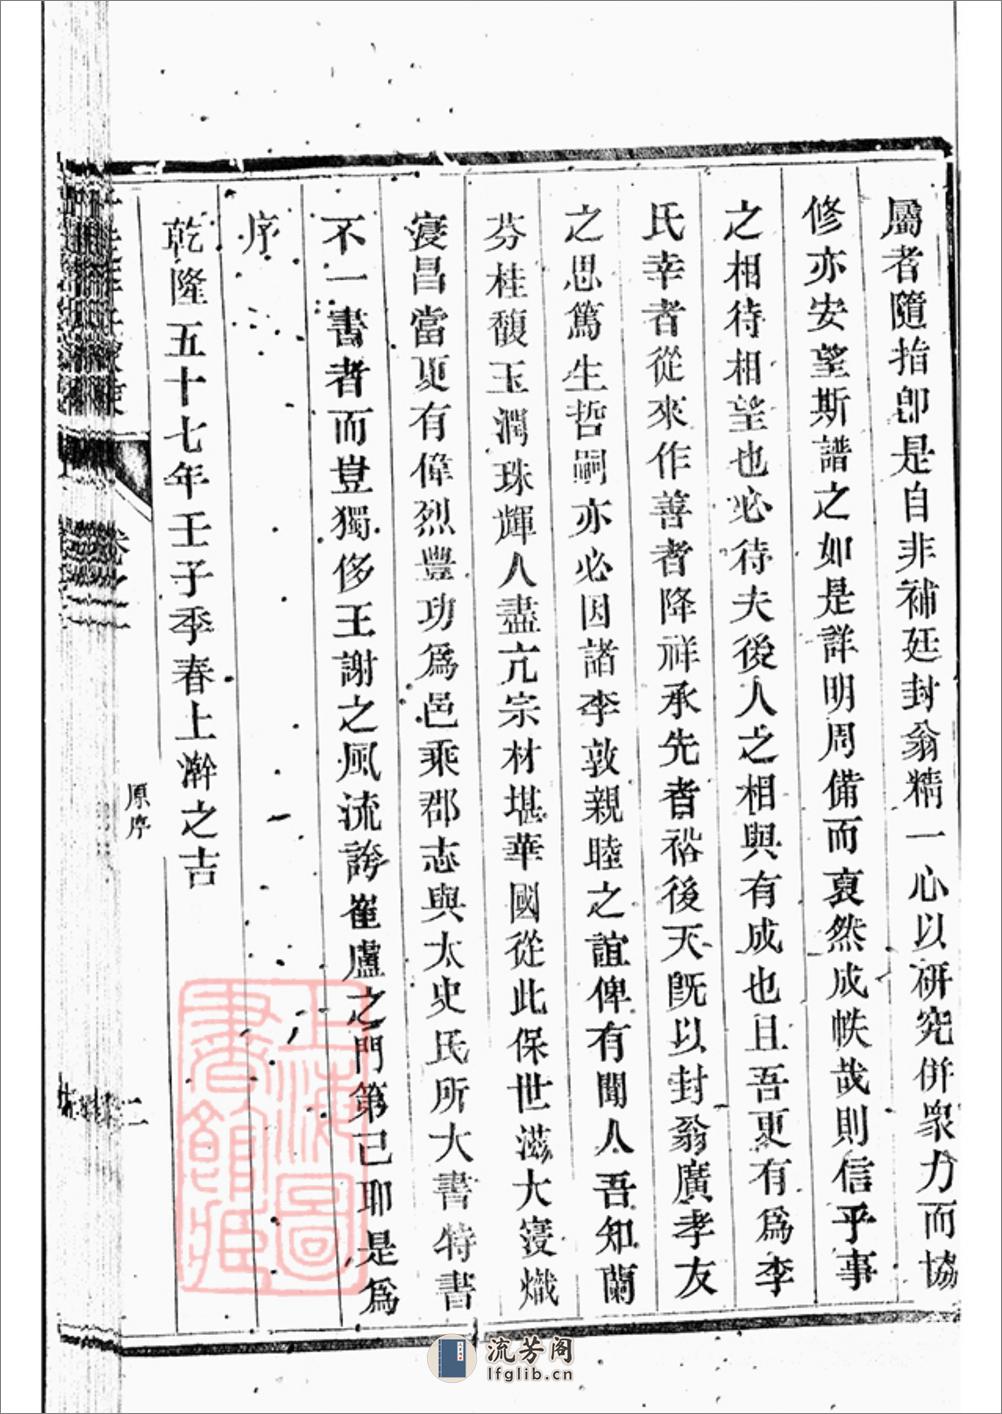 屬者隨指卽是自非補廷封翁精一心以研究併衆力而協
修亦安望斯譜之如是詳明周備而裒然成帙哉則信乎事
之相待相望也必待夫後人之相與有成也且吾更有爲李
氏幸者從來作善者降祥承先者裕後天旣以封翁廣孝友
之思篤生哲嗣亦必因諸李敦親睦之誼俾有聞人吾知蘭
芬桂馥玉潤珠輝人盡亢宗材堪華國從此保世滋大寖熾
寖昌當更有偉烈豐功爲邑乘郡志與太史氏所大書特書
不一書者而豈獨侈王謝之風流誇崔盧之門第已耶是爲
序
乾隆五十七年壬子季春上澣之吉
原序
二
上海圖書館藏
流芳阁
lfglib.cn